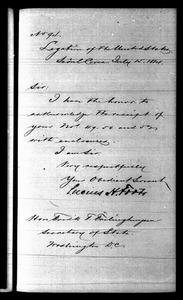 No 94.
Legation of the United States
Seoul Corea July 15. 1884.
Sir:
I have the honor to
acknowledge the receipt of
your Nos 49. 50 and 52.
with enclosures.
I am Sir
Very respectfully
Your Obedient Servant
Lucius H. Foote
Hon. Fredk T. Frelinghuysen
Secretary of State
Washington D.C.